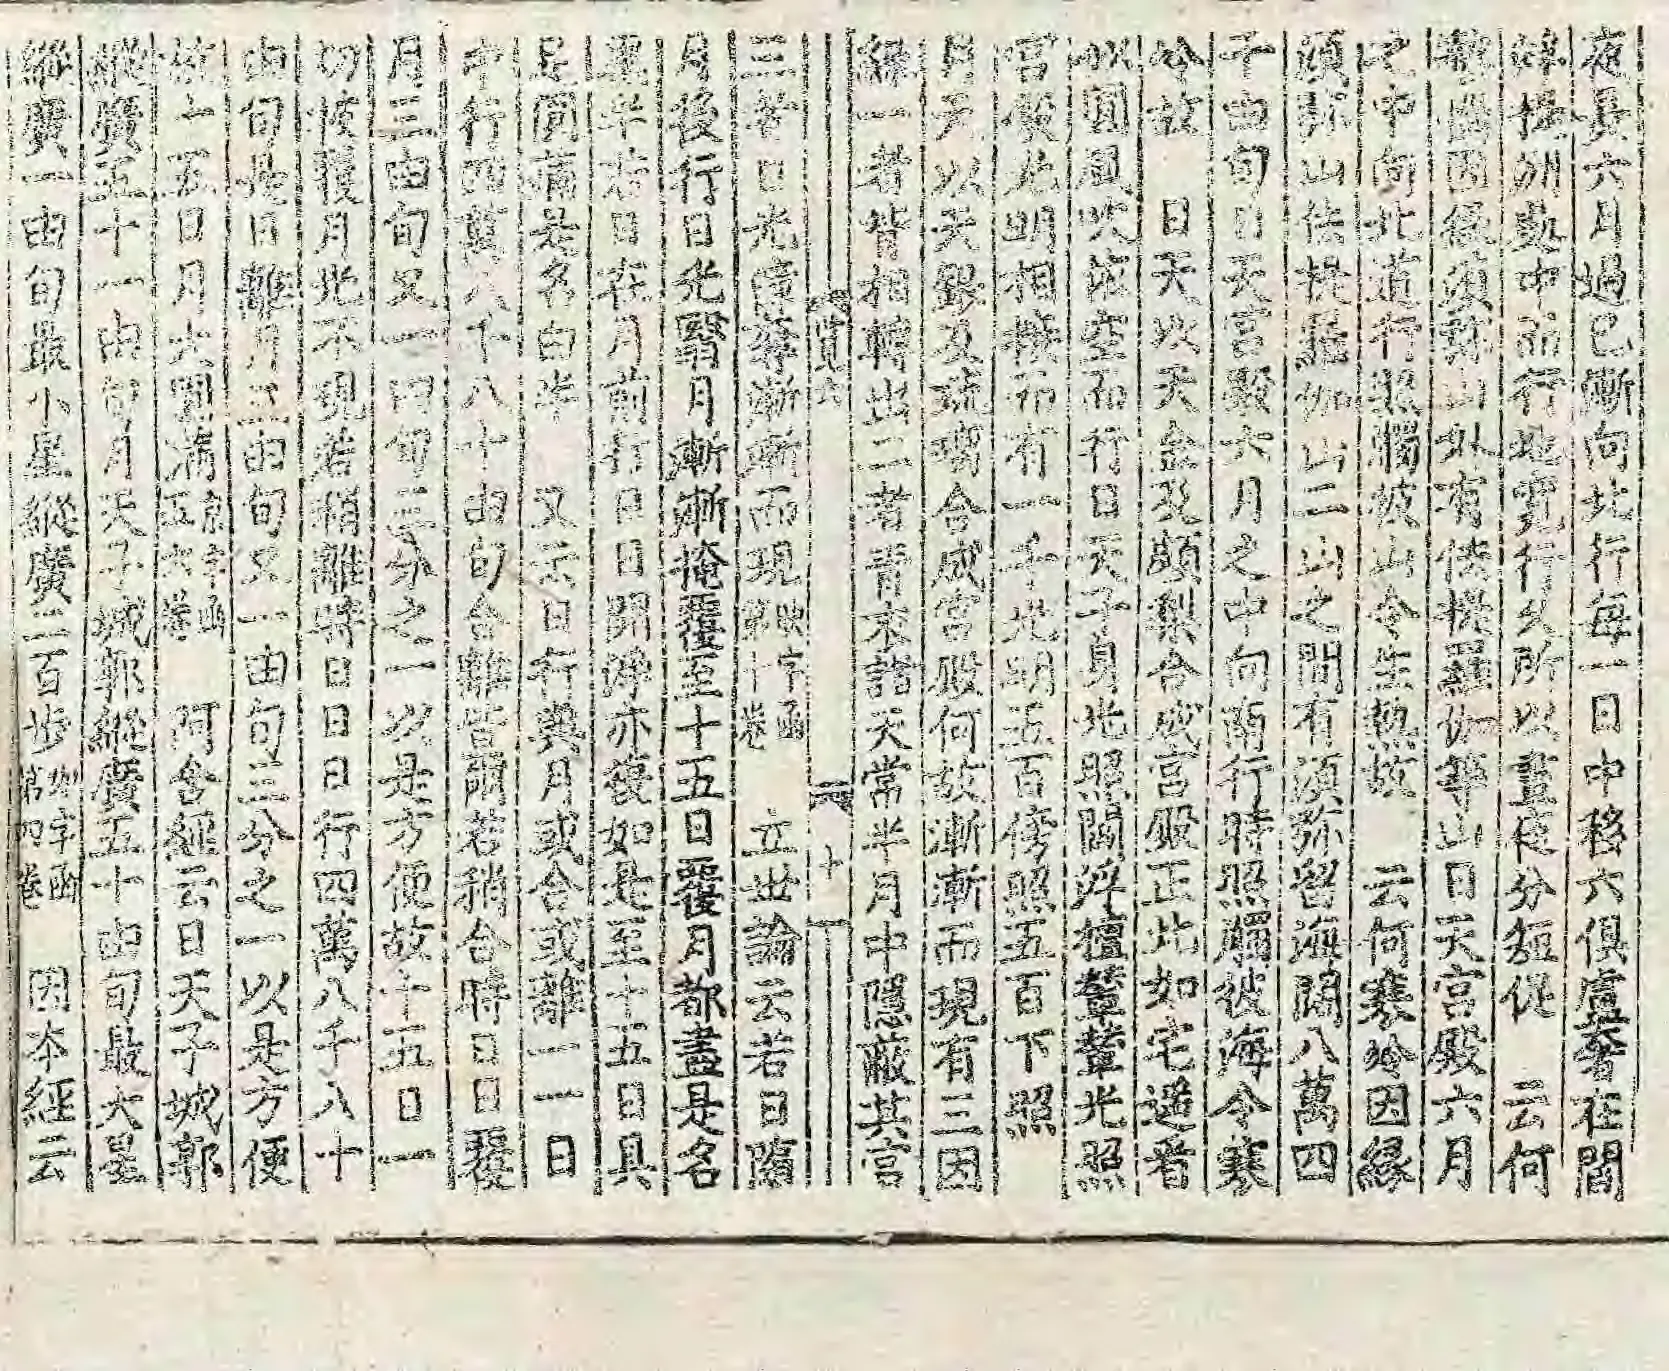 夜晷六月過已漸向北行每一日中移六俱盧奢在閻
浮提洲處中而行地寬行久所以晝夜分短促 云何
熱也因緣須弥山外有佉提羅伽等山日天宮殿六月
之中向北道行照觸彼山令生熱故 云何寒冷因緣
須弥山佉提羅伽山二山之間有須弥留海闊八萬四
千由旬日天宮殿六月之中向南行時照觸彼海令寒
冷故 日天以天金及頗梨合成宮殿正北如宅遥看
似圓風吹依空而行日天子身光照閻浮檀輦輦光照
宮殿光明相接而有一千光明五百傍照五百下照
月天以天銀及琉璃合成宮殿何故漸漸而現有三因
緣一者背相轉出二者青衣諸天常半月中隱蔽其宮
三者日光障奪漸漸而現 第十卷 立世論云若日隨
月後行日光翳月漸漸掩覆至十五日覆月都盡是名
黑半若日在月前行日日開淨亦復如是至十五日具
足圓滿是名白半 又云日行與月或合或離一一日
中行四萬八千八十由旬合離皆爾若稍合時日日覆
月三由旬又一由旬三分之一以是方便故十五日一
切彼覆月光不現若稍離時日日日行四萬八千八十
由旬是日離月三由旬又一由旬三分之一以是方便
故十五日月大圓滿 五六卷 阿含經云日天子城郭
縱廣五十一由旬月天子城郭縱廣五十由旬最大星
縱廣一由旬最小星縱廣二百步 字函第四卷 因本經云